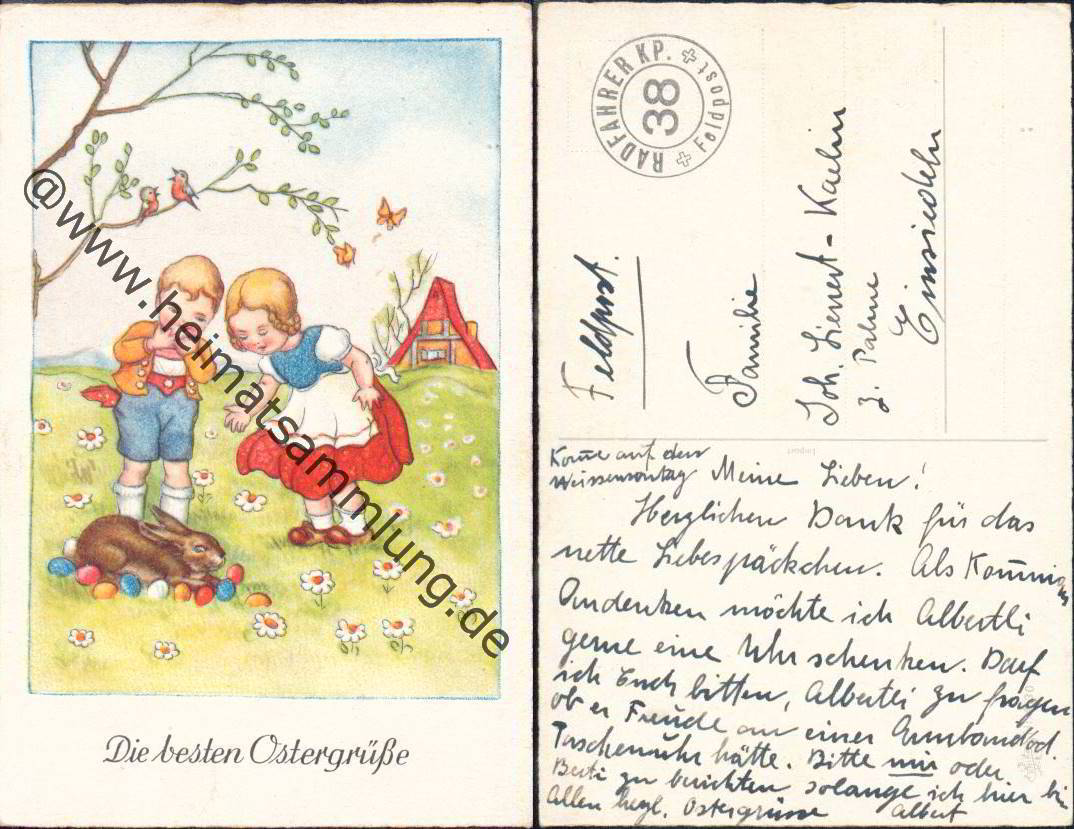 @www.heimatsammlung.de
Die besten Ostergrüße
RADFAHRER KP. + Feldpost +
38
Feldpost.
Familie
Joh. Lienert-Kaelin
z. Palme
Einsiedeln
Kome auf den
Weissensontag
Meine Lieben!
Herzlichen Dank für das
nette Liebespäckchen. Als Kommunion
Andenken möchte ich Albertli
gerne eine Uhr schenken. Darf
ich Euch bitten, Albertli zu fragen
ob er Freude an einer Armband od.
Taschenuhr hätte. Bitte mir oder
Berti zu berichten solange ich hier bin
Allen herzl. Ostergrüsse Albert